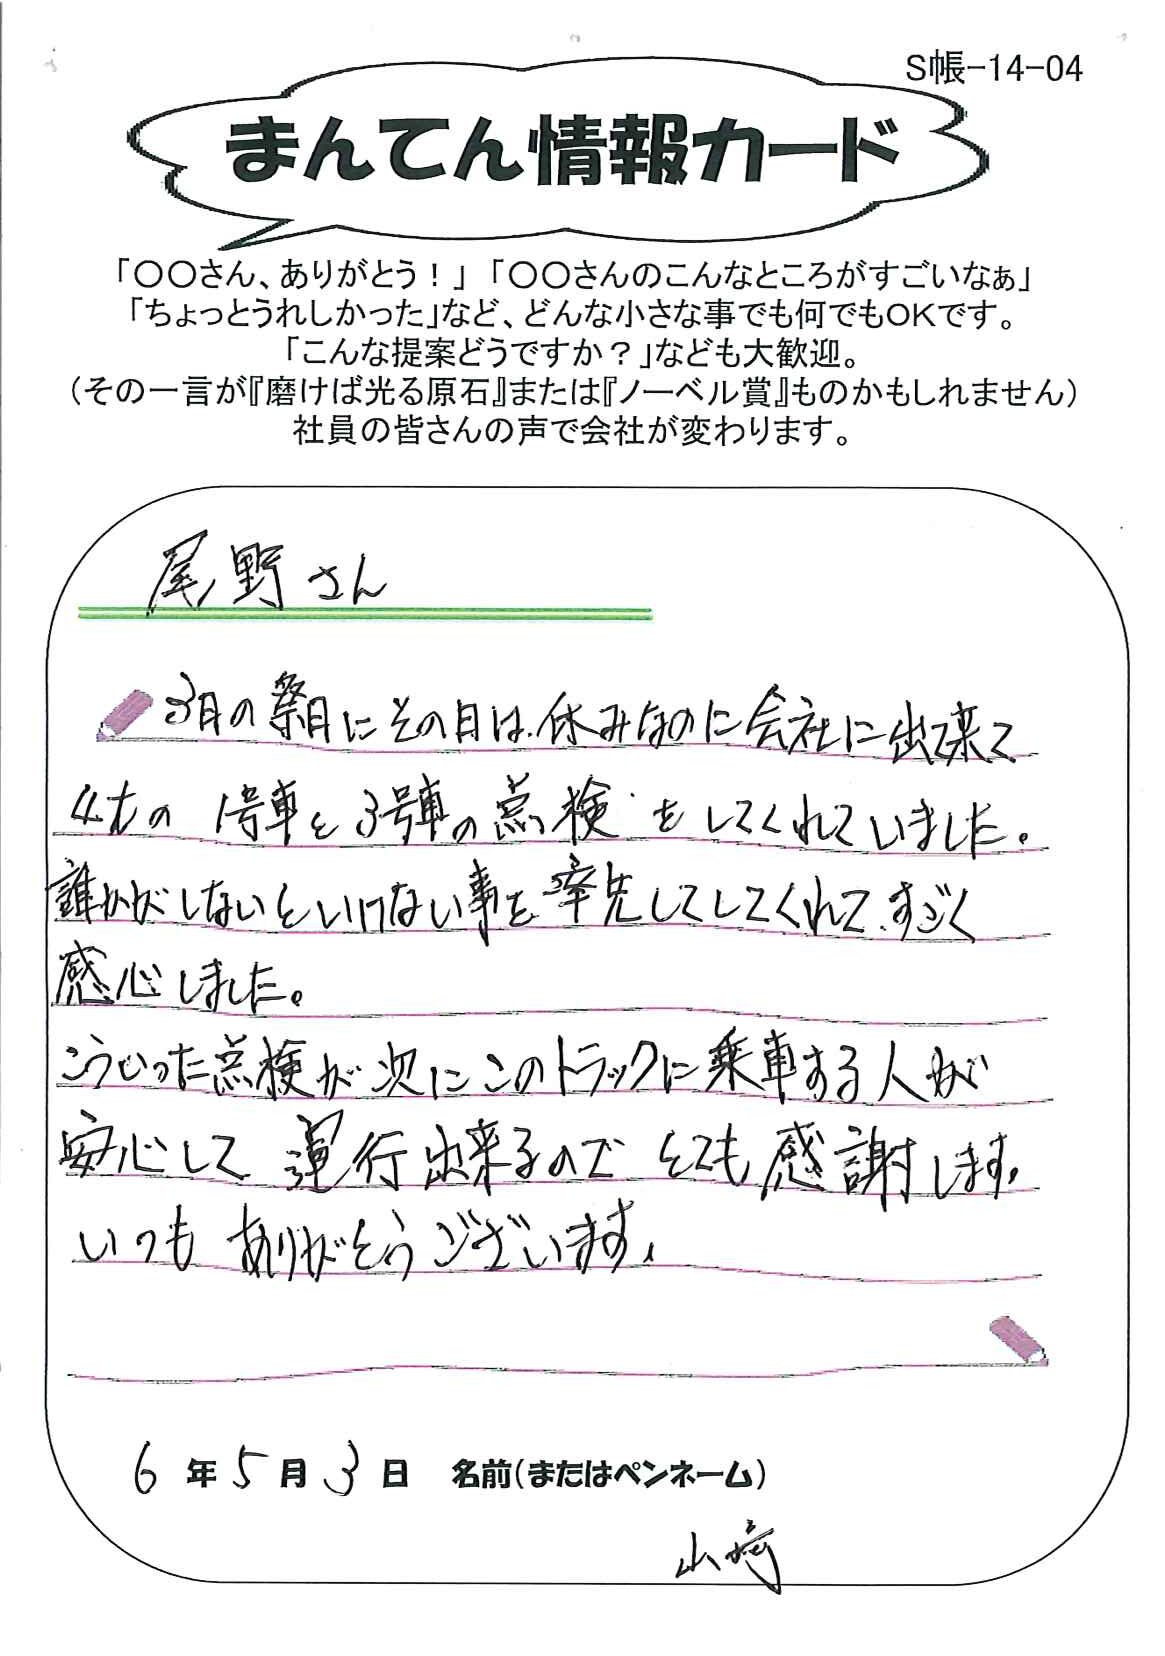 S帳-14-04
まんてん情報カード
「〇〇さん、ありがとう！」「〇〇さんのこんなところがすごいなぁ」
「ちょっとうれしかった」など、どんな小さな事でも何でもOKです。
「こんな提案どうですか？」なども大歓迎。
（その一言が『磨けば光る原石』または『ノーベル賞』ものかもしれません）
社員の皆さんの声で会社が変わります。
尾野さん
3日の祭日にその日は、休みなのに会社に出て来て
4tの 1号車と3号車の点検をしてくれていました。
誰かがしないといけない事を率先してしてくれて、すごく
感心しました。
こういった点検が次にこのトラックに乗車する人が
安心して運行出来るのでとても感謝します。
いつもありがとうございます。
6年5月3日 名前（またはペンネーム）
山崎